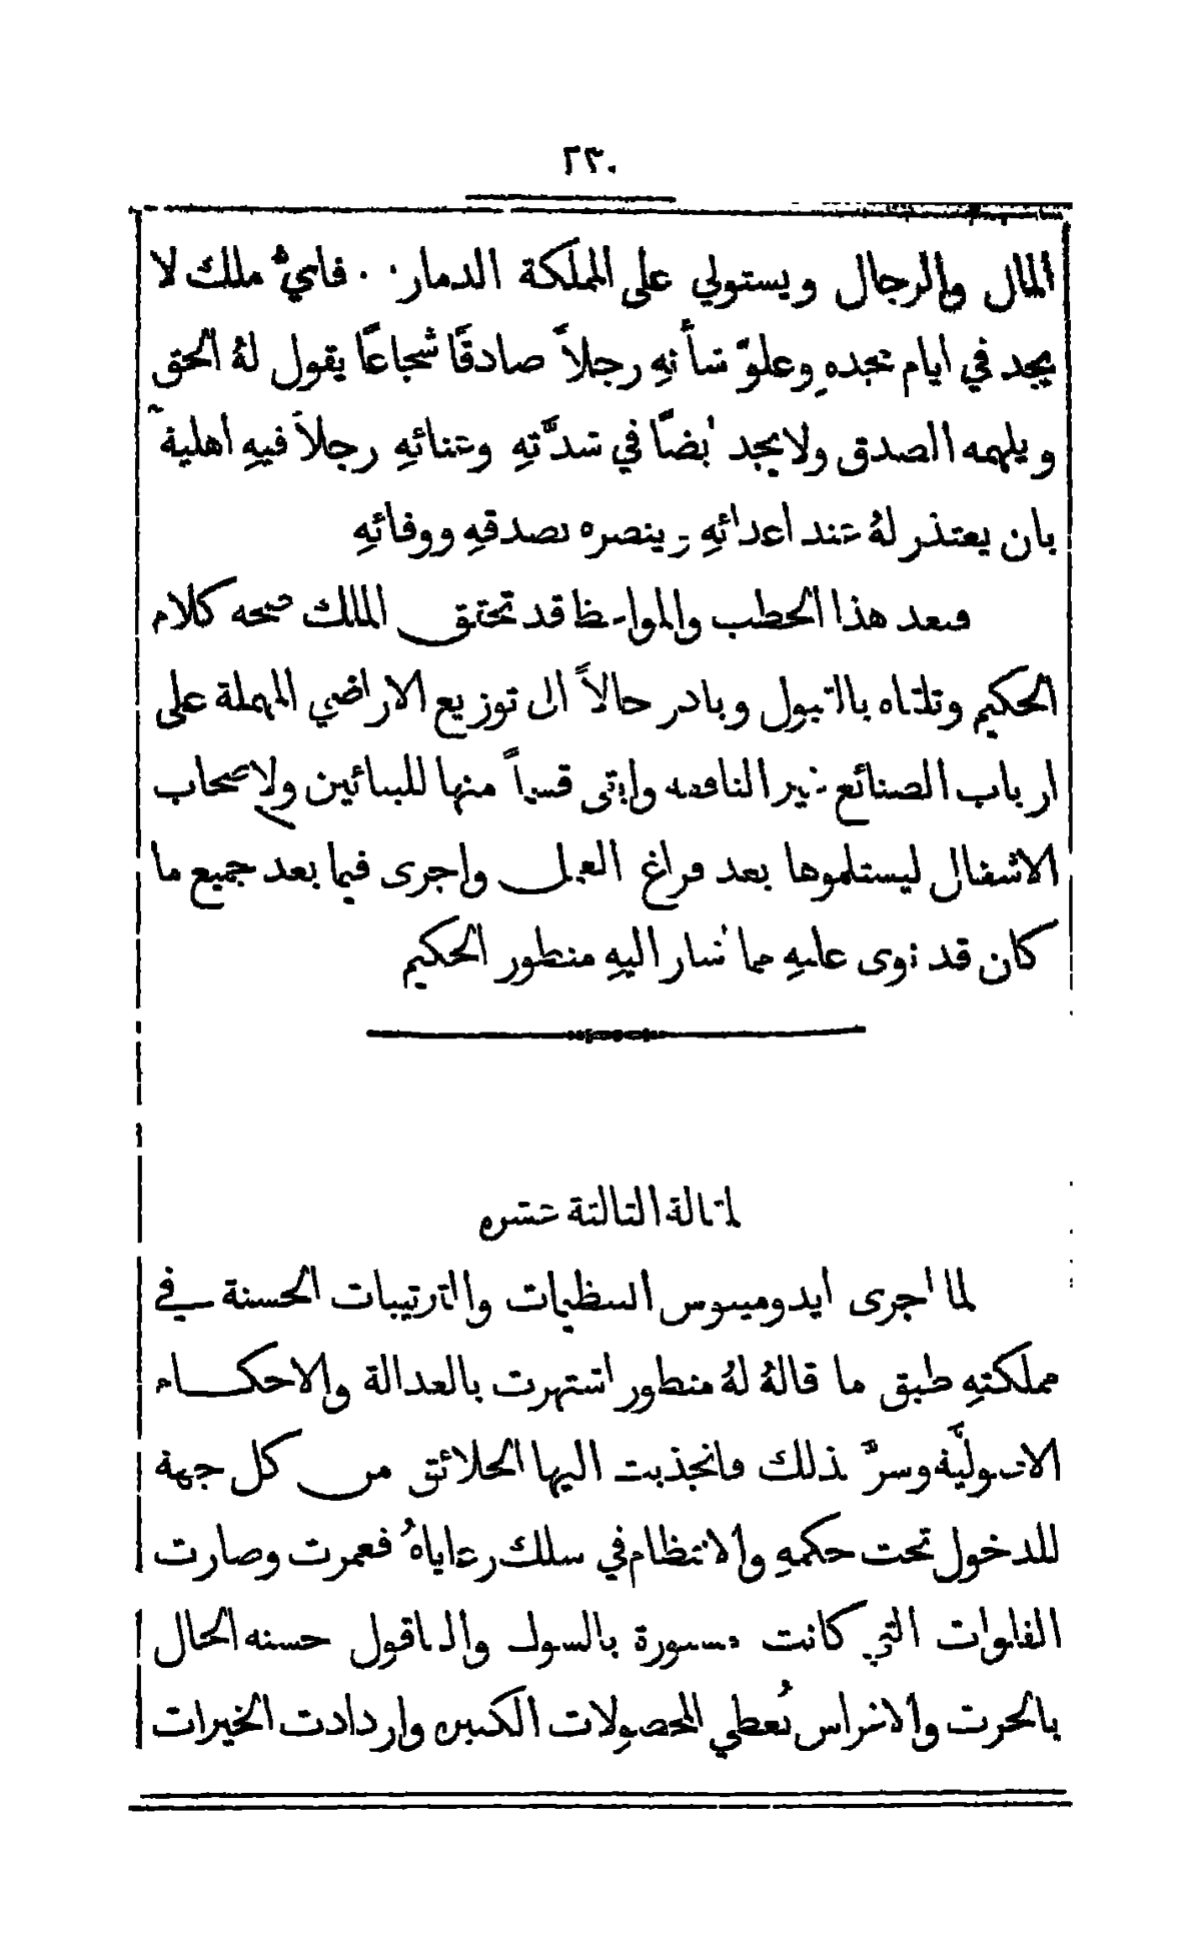 ٢٣٠
المال والرجال ويستولي على المملكة الدمار. . فايّ ملك لا
يجد في ايام مجده وعلوّ شأنهِ رجلاً صادقًا شجاعًا يقول لهُ الحق
ويلهمه الصدق ولا يجد ايضًا في شدَّتهِ وعنائهِ رجلاً فيهِ اهلية
بان يعتذر لهُ عند اعدائهِ وينصره بصدقهِ ووفائهِ
فبعد هذا الخطب والمواعظ قد تحقق الملك صحه كلام
الحكيم وتلقاه بالقبول وبادر حالاً الى توزيع الاراضي المهملة على
ارباب الصنائع غير النافعه وابقى قسماً منها للبنائين ولاصحاب
الاشغال ليستلموها بعد فراغ العمل واجرى فيما بعد جميع ما
كان قد نوى عليهِ مما اشار اليهِ منطور الحكيم
المقالة الثالثة عشره
لما اجرى ايدومينوس التنظيمات والترتيبات الحسنة في
مملكتهِ طبق ما قالهُ لهُ منطور اشتهرت بالعدالة والاحكام
الاصوليَّة وسرَّ بذلك فانجذبت اليها الخلائق من كل جهة
للدخول تحت حكمهِ والانتظام في سلك رعاياهُ فعمرت وصارت
الفلوات التي كانت مستورة بالشوك والعاقول حسنه الحال
بالحرث والاغراس تُعطي المحصولات الكثيره وازدادت الخيرات